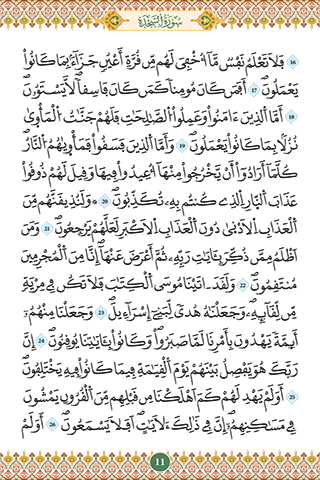 سُورَةُ السَّجْدَةِ
16 فَلَا تَعْلَمُ نَفْسٌ مَّآ أُخْفِيَ لَهُم مِّن قُرَّةِ أَعْيُنٍ جَزَآءًۢ بِمَا كَانُواْ
يَعْمَلُونَ 17 أَفَمَن كَانَ مُومِناً كَمَن كَانَ فَاسِقاً لَّا يَسْتَوُۥنَ
18 أَمَّا اَلذِينَ ءَامَنُواْ وَعَمِلُواْ اُلصَّٰلِحَٰتِ فَلَهُمْ جَنَّٰتُ اُلْمَأْوۭيٰ
نُزُلَۢا بِمَا كَانُواْ يَعْمَلُونَ 19 وَأَمَّا اَلذِينَ فَسَقُواْ فَمَأْوۭيٰهُمُ اُلنَّارُ
كُلَّمَآ أَرَادُوٓاْ أَنْ يَّخْرُجُواْ مِنْهَآ أُعِيدُواْ فِيهَا وَقِيلَ لَهُمْ ذُوقُواْ
عَذَابَ اَلنّ۪ارِ اِلذِے كُنتُم بِهِۦ تُكَذِّبُونَ 20 وَلَنُذِيقَنَّهُم مِّنَ
اَلْعَذَابِ اِلْأَدْنۭيٰ دُونَ اَلْعَذَابِ اِلْأَكْبَرِ لَعَلَّهُمْ يَرْجِعُونَ 21 وَمَنَ
اَظْلَمُ مِمَّن ذُكِّرَ بِـَٔايَٰتِ رَبِّهِۦ ثُمَّ أَعْرَضَ عَنْهَآ إِنَّا مِنَ اَلْمُجْرِمِينَ
مُنتَقِمُونَ 22 وَلَقَدَ اٰتَيْنَا مُوسَي اَلْكِتَٰبَ فَلَا تَكُن فِے مِرْيَةٍ
مِّن لِّقَآئِهِۦ وَجَعَلْنَٰهُ هُديً لِّبَنِےٓ إِسْرَآءِيلَ 23 وَجَعَلْنَا مِنْهُمُۥٓ
أَئِمَّةً يَهْدُونَ بِأَمْرِنَا لَمَّا صَبَرُواْ وَكَانُواْ بِـَٔايَٰتِنَا يُوقِنُونَ 24 إِنَّ
رَبَّكَ هُوَ يَفْصِلُ بَيْنَهُمْ يَوْمَ اَلْقِيَٰمَةِ فِيمَا كَانُواْ فِيهِ يَخْتَلِفُونَ
25 أَوَلَمْ يَهْدِ لَهُمْ كَمَ اَهْلَكْنَا مِن قَبْلِهِم مِّنَ اَلْقُرُونِ يَمْشُونَ
فِے مَسَٰكِنِهِمُۥٓ إِنَّ فِے ذَٰلِكَ ءَلَايَٰتٍ اَفَلَا يَسْمَعُونَ 26 أَوَلَمْ
11